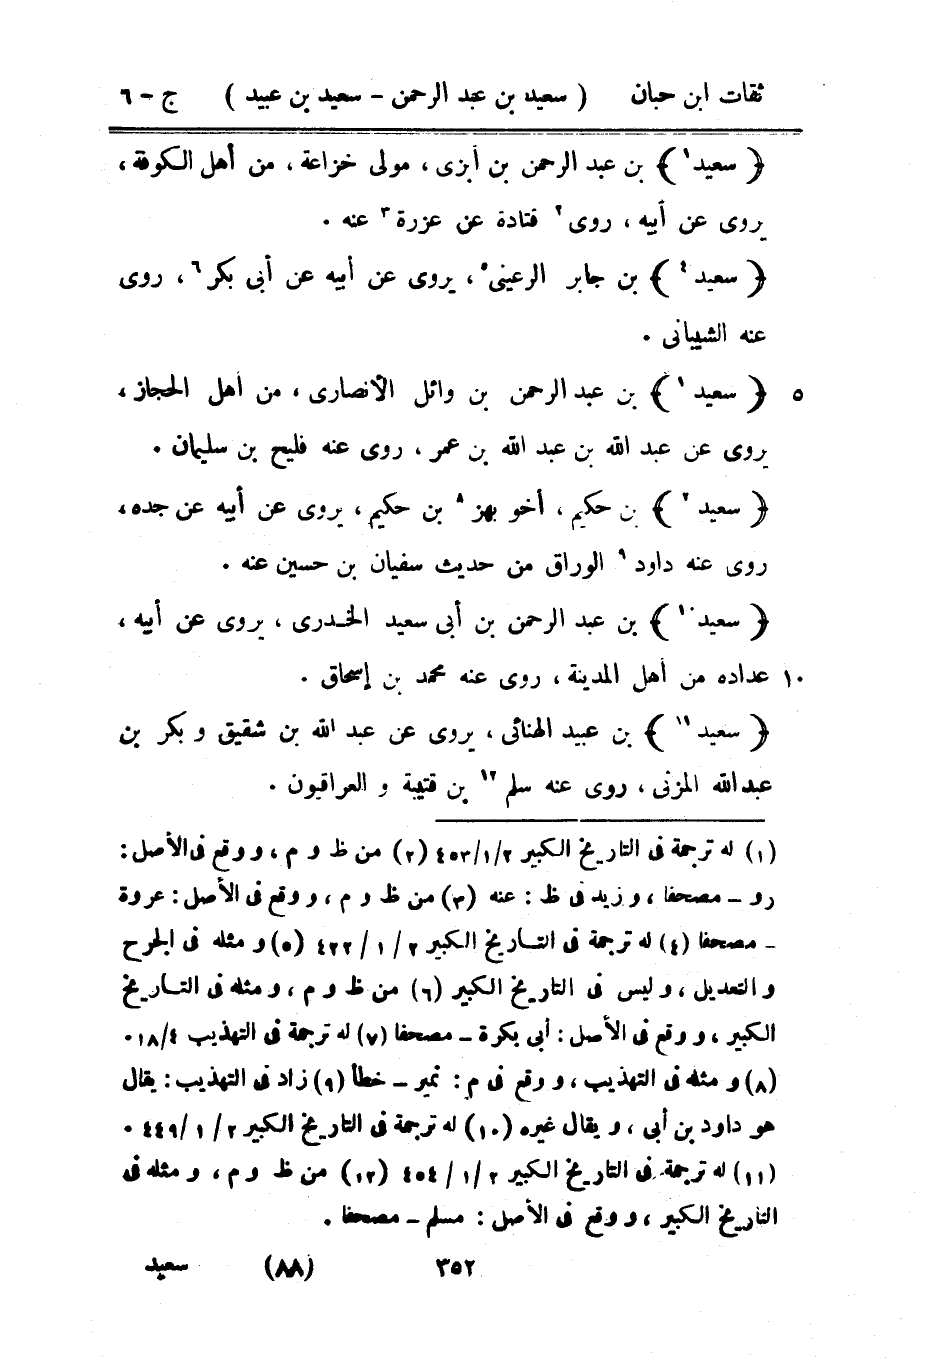 ثقات ابن حبان ( سعيد بن عبد الرحمن – سعيد بن عبيد ) ج – ٦
﴿ سعيد١ ﴾ بن عبد الرحمن بن أبزى ، مولى خزاعة ، من أهل الكوفة ،
يروى عن أبيه ، روى٢ قتادة عن عزرة٣ عنه ٠
﴿ سعيد٤ ﴾ بن جابر الرعينى٥ ، يروى عن أبيه عن أبى بكر٦ ، روى
عنه الشيبانى ٠
٥ ﴿ سعيد١ ﴾ بن عبد الرحمن بن وائل الأنصارى ، من أهل الحجاز ،
يروى عن عبد الله بن عبد الله بن عمر ، روى عنه فليح بن سليمان ٠
﴿ سعيد٢ ﴾ بن حكيم ، أخو بهز٨ بن حكيم ، يروى عن أبيه عن جده ،
روى عنه داود٩ الوراق من حديث سفيان بن حسين عنه ٠
﴿ سعيد١٠ ﴾ بن عبد الرحمن بن أبى سعيد الخدرى ، يروى عن أبيه ،
١٠ عداده من أهل المدينة ، روى عنه محمد بن إسحاق ٠
﴿ سعيد١١ ﴾ بن عبيد الهنائى ، يروى عن عبد الله بن شقيق و بكر بن
عبدالله المزنى ، روى عنه سلم١٢ بن قتيبة و العراقيون ٠
(١) له ترجمة فى التاريخ الكبير ٤٥٣/١/٢ (٢) من ظ و م ، ووقع فى الأصل :
رو – مصحفا ، و زيد فى ظ : عنه (٣) من ظ و م ، و وقع فى الأصل : عروة
– مصحفا (٤) له ترجمة فى التاريخ الكبير ٢ / ١ / ٤٢٢ (٥) و مثله فى الجرح
و التعديل ، و ليس فى التاريخ الكبير (٦) من ظ و م ، و مثله فى التاريخ
الكبير ، و وقع فى الأصل : أبى بكرة – مصحفا (٧) له ترجمة فى التهذيب ١٨/٤ ٠
(٨) و مثله فى التهذيب ، و وقع فى م : نمير – خطأ (٩) زاد فى التهذيب : يقال
هو داود بن أبى ، و يقال غيره (١٠) له ترجمة فى التاريخ الكبير ٢ / ١ /٤٤٩ ٠
(١١) له ترجمة فى التاريخ الكبير ٢ /١ / ٤٥٤ (١٢) من ظ و م ، و مثله فى
التاريخ الكبير ، و وقع فى الأصل : مسلم – مصحفا .
٣٥٢ (٨٨) سعيد